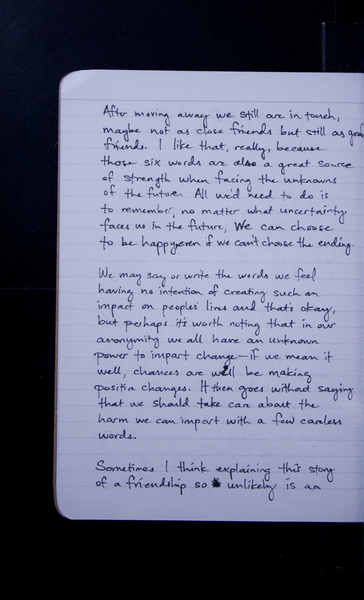 After moving away we still are in touch,
maybe not as close friends but still as good
friends. I like that, really, because
those six words are also a great source
of strength when facing the unknowns
of the future. All we'd need to do is
to remember, no matter what uncertainty
faces us in the future, We can choose
to be happy even if we can't choose the ending.
We may say or write the words we feel
having no intention of creating such an
impact on peoples' lives and that's okay,
but perhaps it's worth noting that in our
anonymity we all have an unknown
power to impart change—if we mean it
well, chances are we'll be making
positive changes. It then goes without saying
that we should take care about the
harm we can impart with a few careless
words.
Sometimes I think explaining this story
of a friendship so unlikely is an